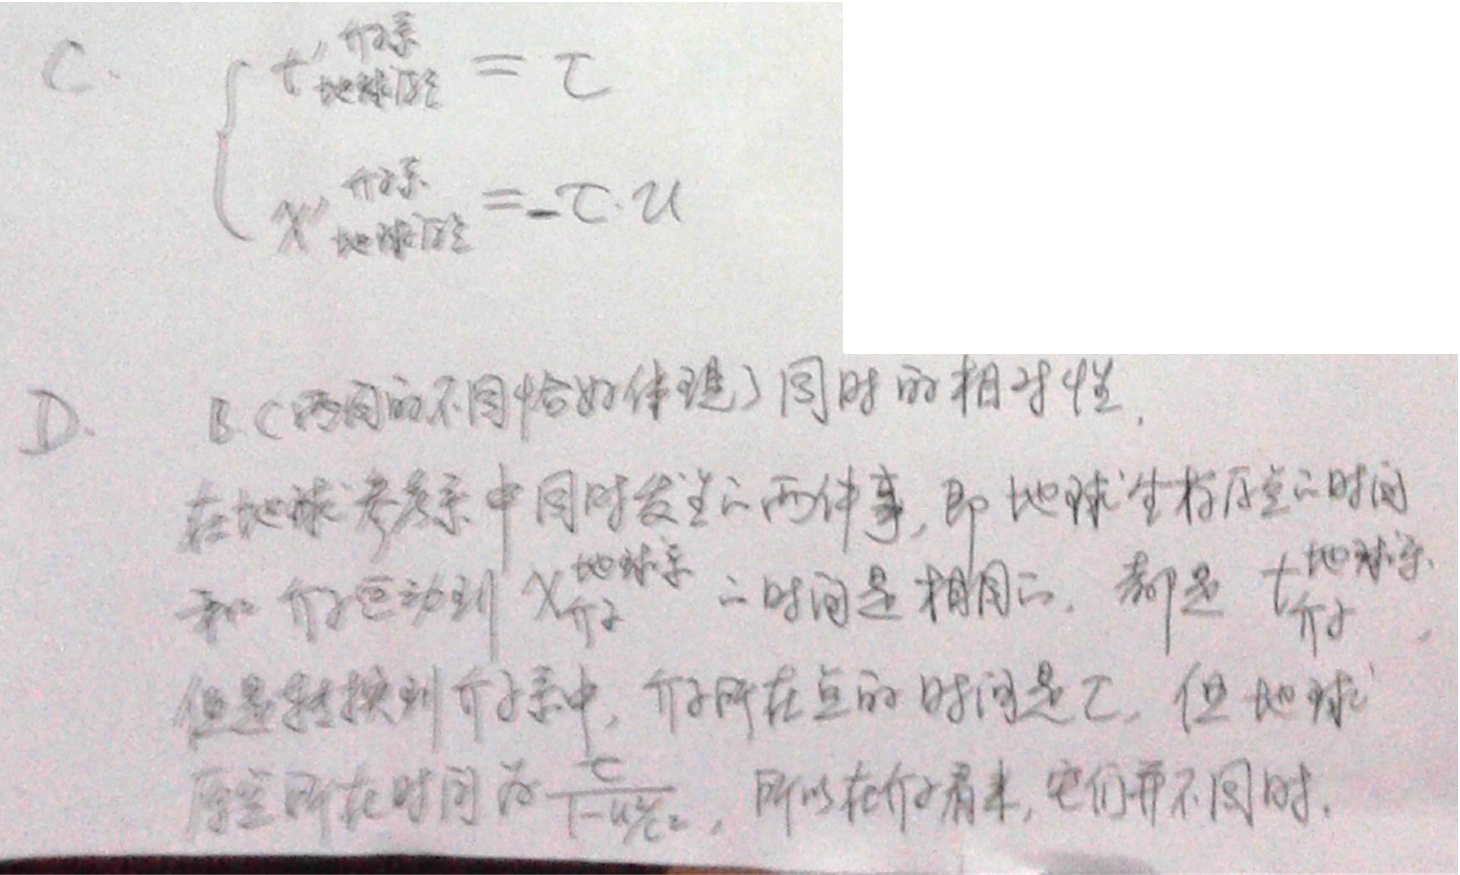 C. t'^{介子系}_{地球原点} = τ
x'^{介子系}_{地球原点} = -τ·u
D. BC两问的不同恰好体现了同时的相对性.
在地球参考系中同时发生的两件事,即地球坐标原点的时间
和介子运动到 x^{地球系}_{介子} 的时间是相同的. 都是 t^{地球系}_{介子},
但是转换到介子系中,介子所在点的时间是τ,但地球
原点所在时间为 τ/(1-u²/c²),所以在介子看来,它们并不同时.